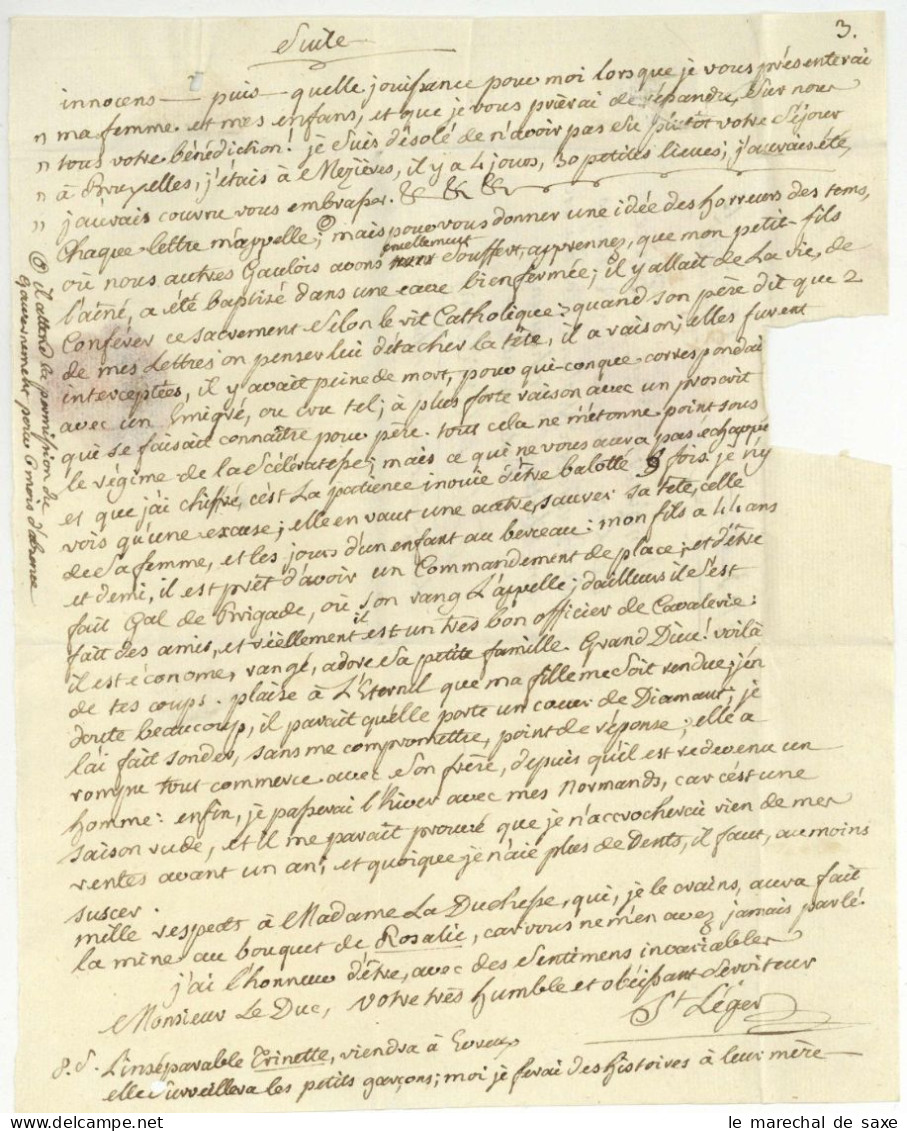 3.
Suite
innocens — puis — quelle jouissance pour moi lorsque je vous présenterai
" ma femme et mes enfans, et que je vous prierai de répandre sur nous
" tous votre bénédiction! je suis désolé de n'avoir pas su plutôt votre séjour
" à Bruxelles; j'étais à Mezières, il y a 4 jours, 30 petites lieues; j'aurais été,
" j'aurais couru vous embrasser. & & &
Chaque lettre m'appelle; @ mais pour vous donner une idée des horreurs des tems,
où nous autres Gaulois avons cruellement souffert, apprennez, que mon petit-fils
l'aîné, a été baptisé dans une cave bien fermée; il y allait de la vie, de
Conférer ce sacrement selon le rit Catholique; quand son père dit que 2
de mes Lettres on penser lui détacher la tête, il a raison; elles furent
interceptées, il y avait peine de mort, pour qui-conque correspondait
avec un Emigré, ou cru tel; à plus forte raison avec un proscrit
qui se faisait connaître pour père. tout cela ne m'étonne point sous
le régime de la Scélératesse; mais ce qui ne vous aura pas echappé
et que j'ai chiffré, c'est La patience inouie d'être balotté 9 fois. je n'y
vois qu'une excuse; elle en vaut une autre, sauver sa tête, celle
de sa femme, et les jours d'un enfant au berceau: mon fils a 44 ans
et demi, il est prêt d'avoir un Commandement de place; et d'être
fait Gal de Brigade, où son rang L'appelle; d'ailleurs il s'est
fait des amis, et réellement il est un très bon officier de Cavalerie:
il est économe, rangé, adore sa petite famille. Grand Dieu! voilà
de tes coups. plaise à L'Eternil que ma fille me soit rendue; j'en
doute beaucoup, il parait qu'elle porte un cœur de Diamant; je
l'ai fait sonder, sans me compromettre, point de réponse; elle a
rompu tout commerce avec son frère, depuis qu'il est redevenu un
homme: enfin, je passerai l'hiver avec mes Normands, car c'est une
saison rude, et il me parait prouvé que je n'accrocherai rien de mes
rentes avant un an; et quoique je n'aie plus de Dents, il faut, au moins
suscer.
mille respects à Madame La Duchesse, qui, je le crains, aura fait
la mine au bouquet de Rosalie, car vous ne m'en avez jamais parlé.
j'ai l'honneur d'être, avec des sentimens invariables
Monsieur Le Duc, votre très humble et obéissant Serviteur
St Léger
P.S. L'inséparable Trinette, viendra à Evreux
elle surveillera les petits garçons; moi je ferai des histoires à leur mère
@ il attend la permission du
Gouvernement pour 6 mois d'absence
le marechal de saxe